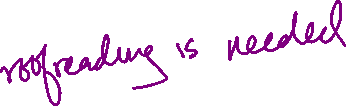 roofreading is needed